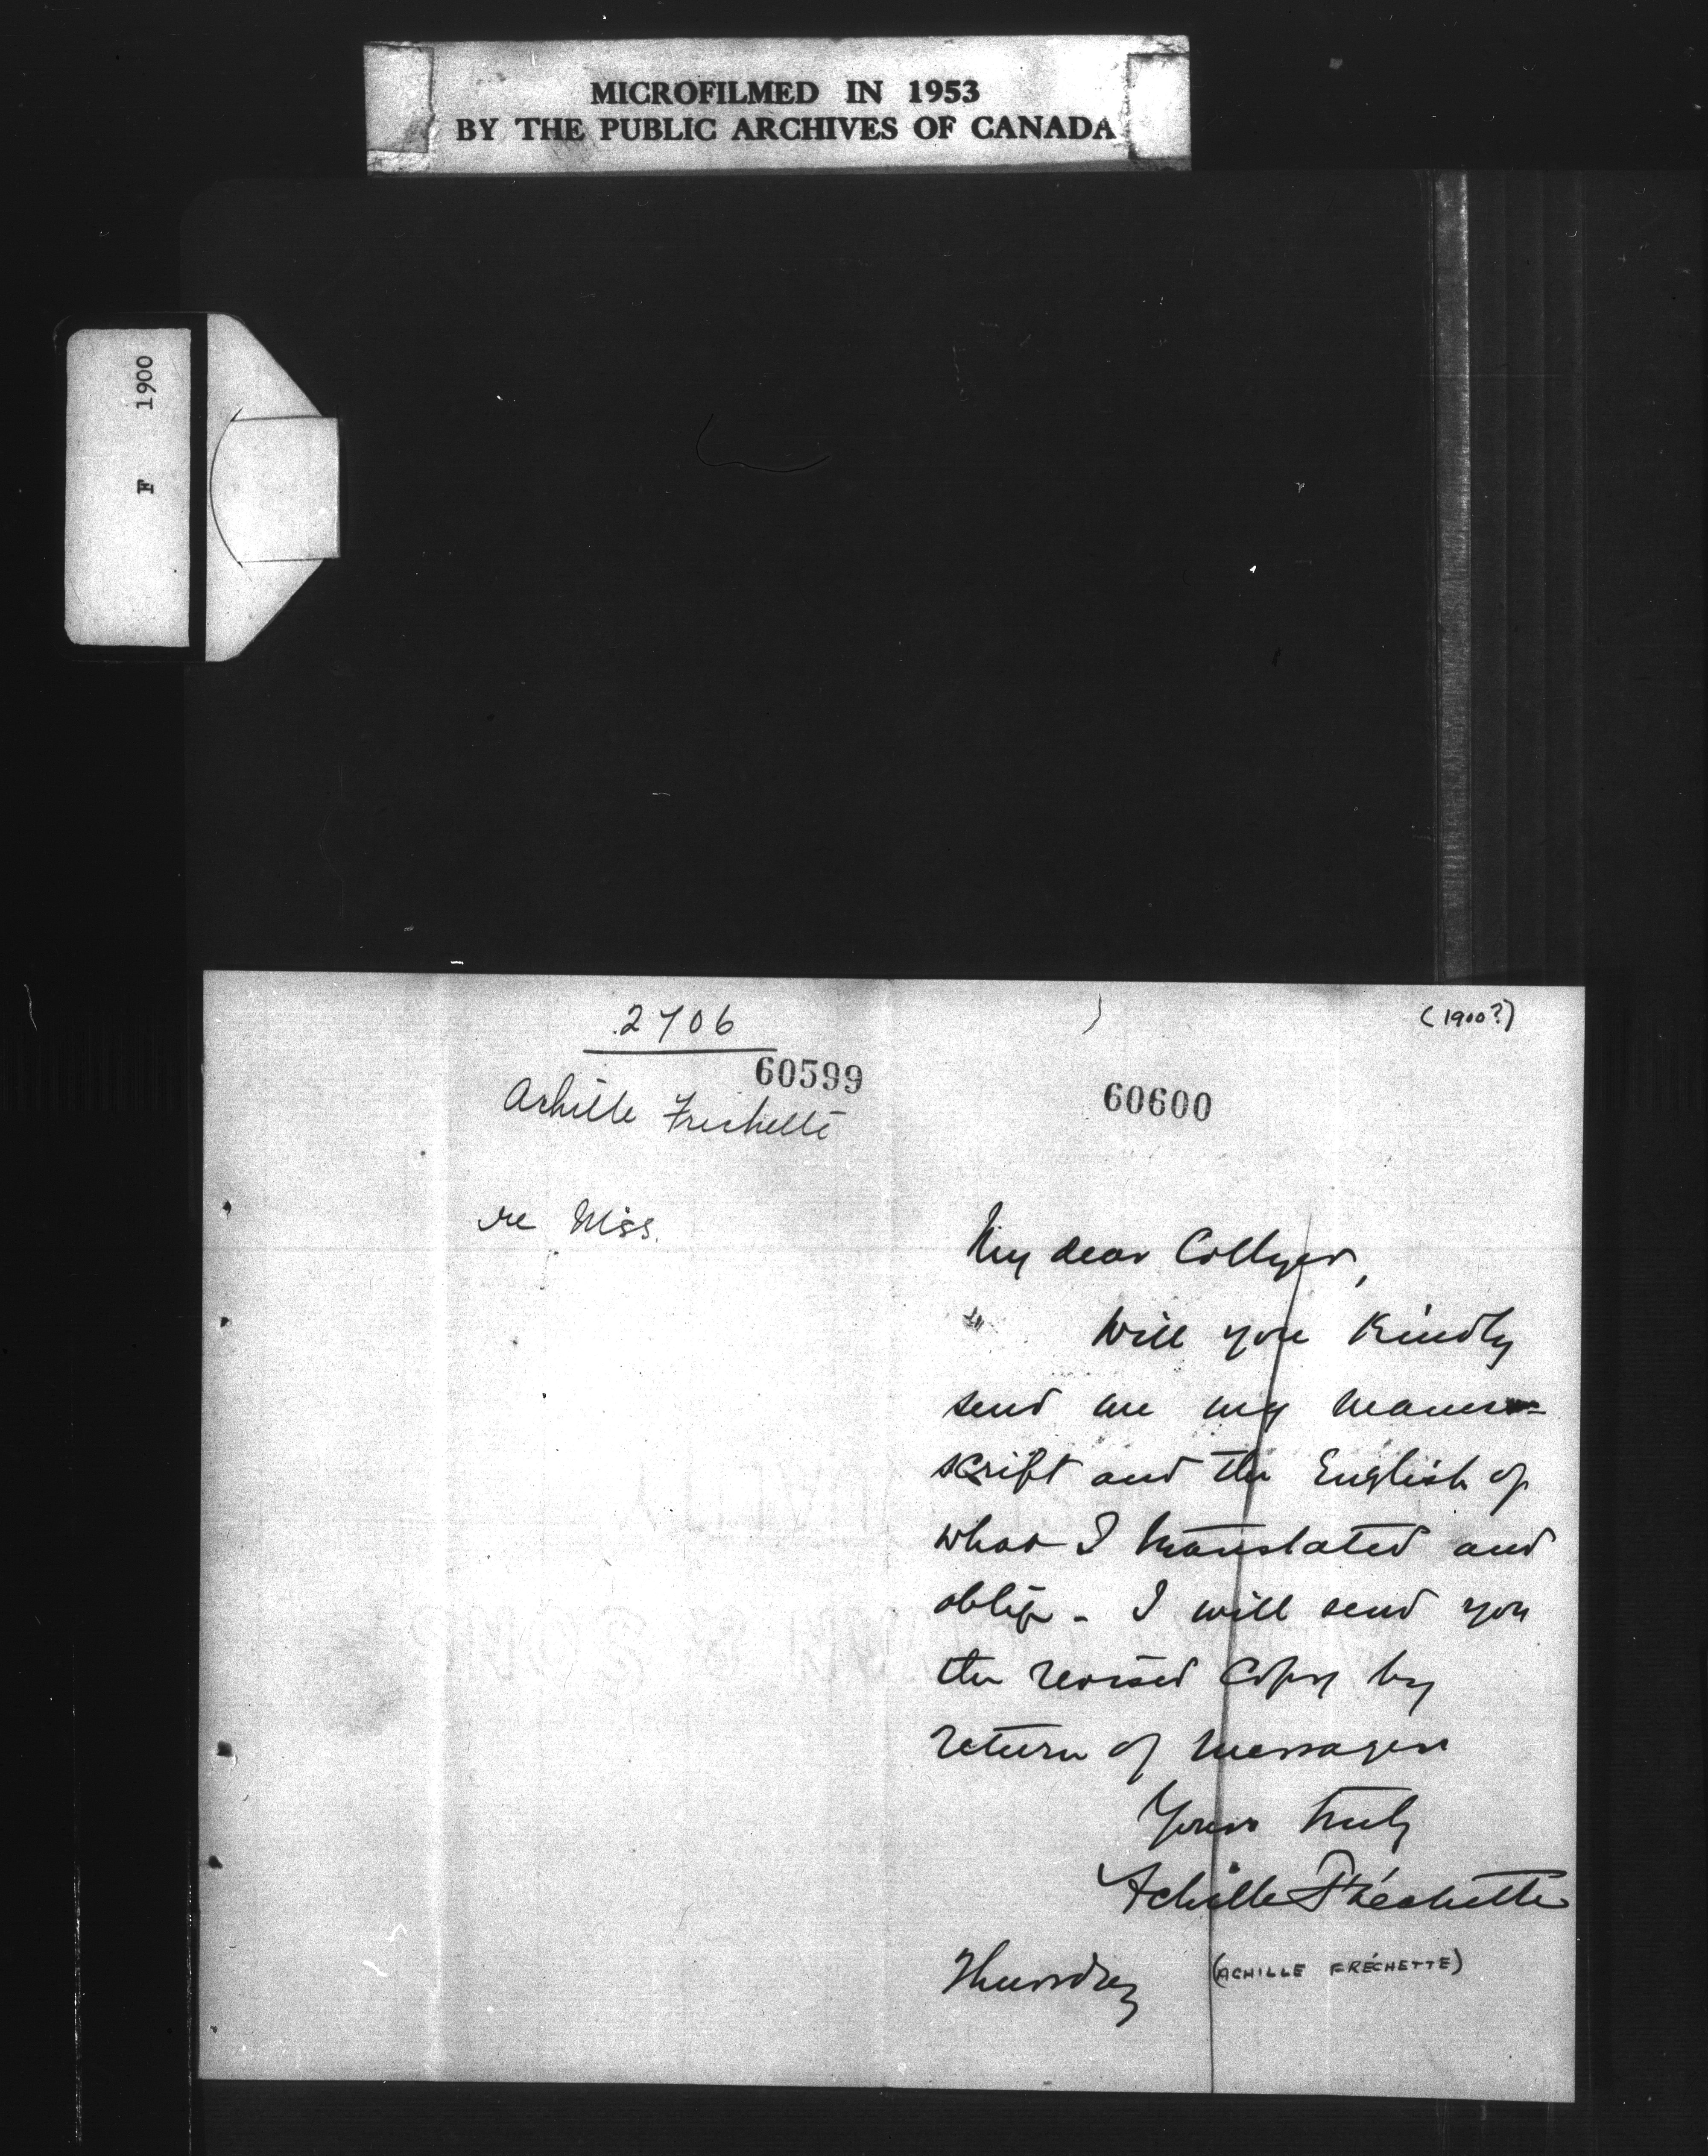 MICROFILMED IN 1953
BY THE PUBLIC ARCHIVES OF CANADA
F 1900
2706
60599
Achille Frechette
re Mss.
(1900?)
60600
My dear Collyer,
Will you kindly
send me my manu-
script and the English of
what I translated and
oblige - I will send you
the revised copy by
return of messager
Yours truly
Achille Fréchette
Thursday
(ACHILLE FRÉCHETTE)